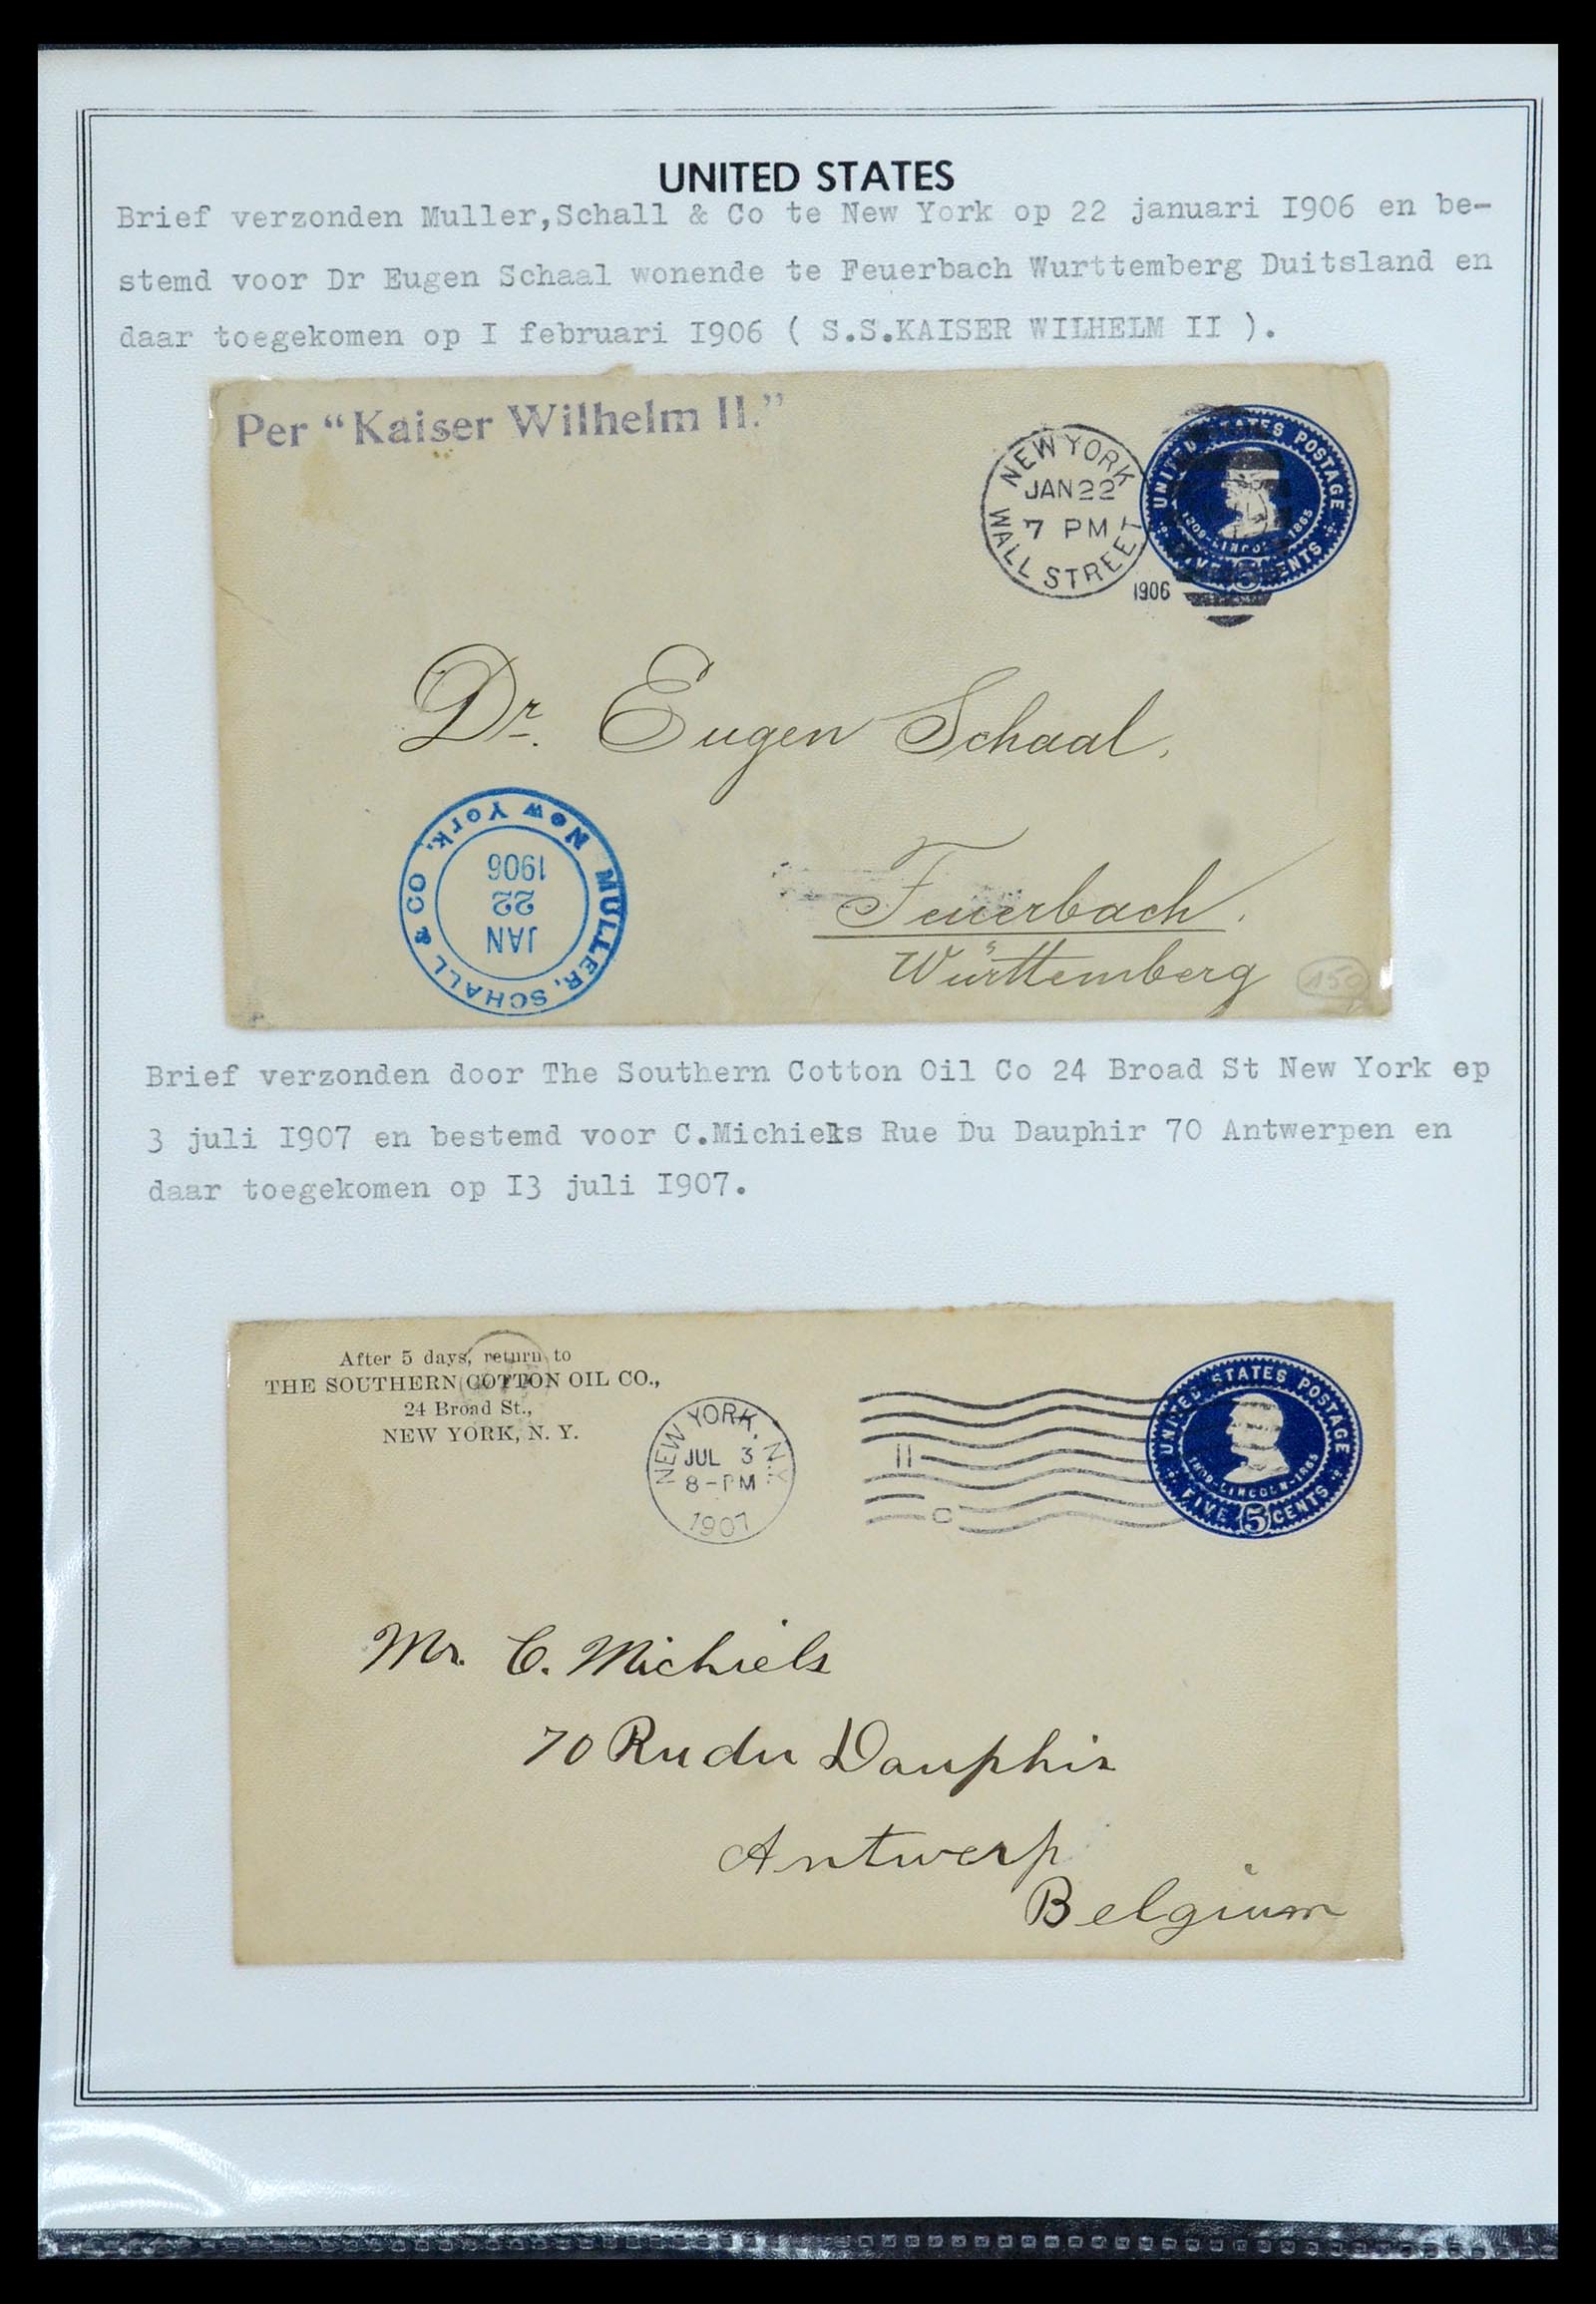 UNITED STATES
Brief verzonden Muller,Schall & Co te New York op 22 januari I906 en be-
stemd voor Dr Eugen Schaal wonende te Feuerbach Wurttemberg Duitsland en
daar toegekomen op I februari I906 ( S.S.KAISER WILHELM II ).
Per “Kaiser Wilhelm II.”
NEW YORK
JAN 22
7 PM
WALL STREET
1906
UNITED STATES POSTAGE
1809-LINCOLN-1865
FIVE 5 CENTS
Dr. Eugen Schaal,
MULLER, SCHALL & CO
New York.
JAN
22
1906
Feuerbach.
Württemberg
150
Brief verzonden door The Southern Cotton Oil Co 24 Broad St New York op
3 juli I907 en bestemd voor C.Michiels Rue Du Dauphir 70 Antwerpen en
daar toegekomen op I3 juli I907.
After 5 days, return to
THE SOUTHERN COTTON OIL CO.,
24 Broad St.,
NEW YORK, N. Y.
NEW YORK, N.Y.
JUL 3
8-PM
1907
II
C
UNITED STATES POSTAGE
1809-LINCOLN-1865
FIVE 5 CENTS
Mr. C. Michiels
70 Ru du Dauphin
Antwerp
Belgium